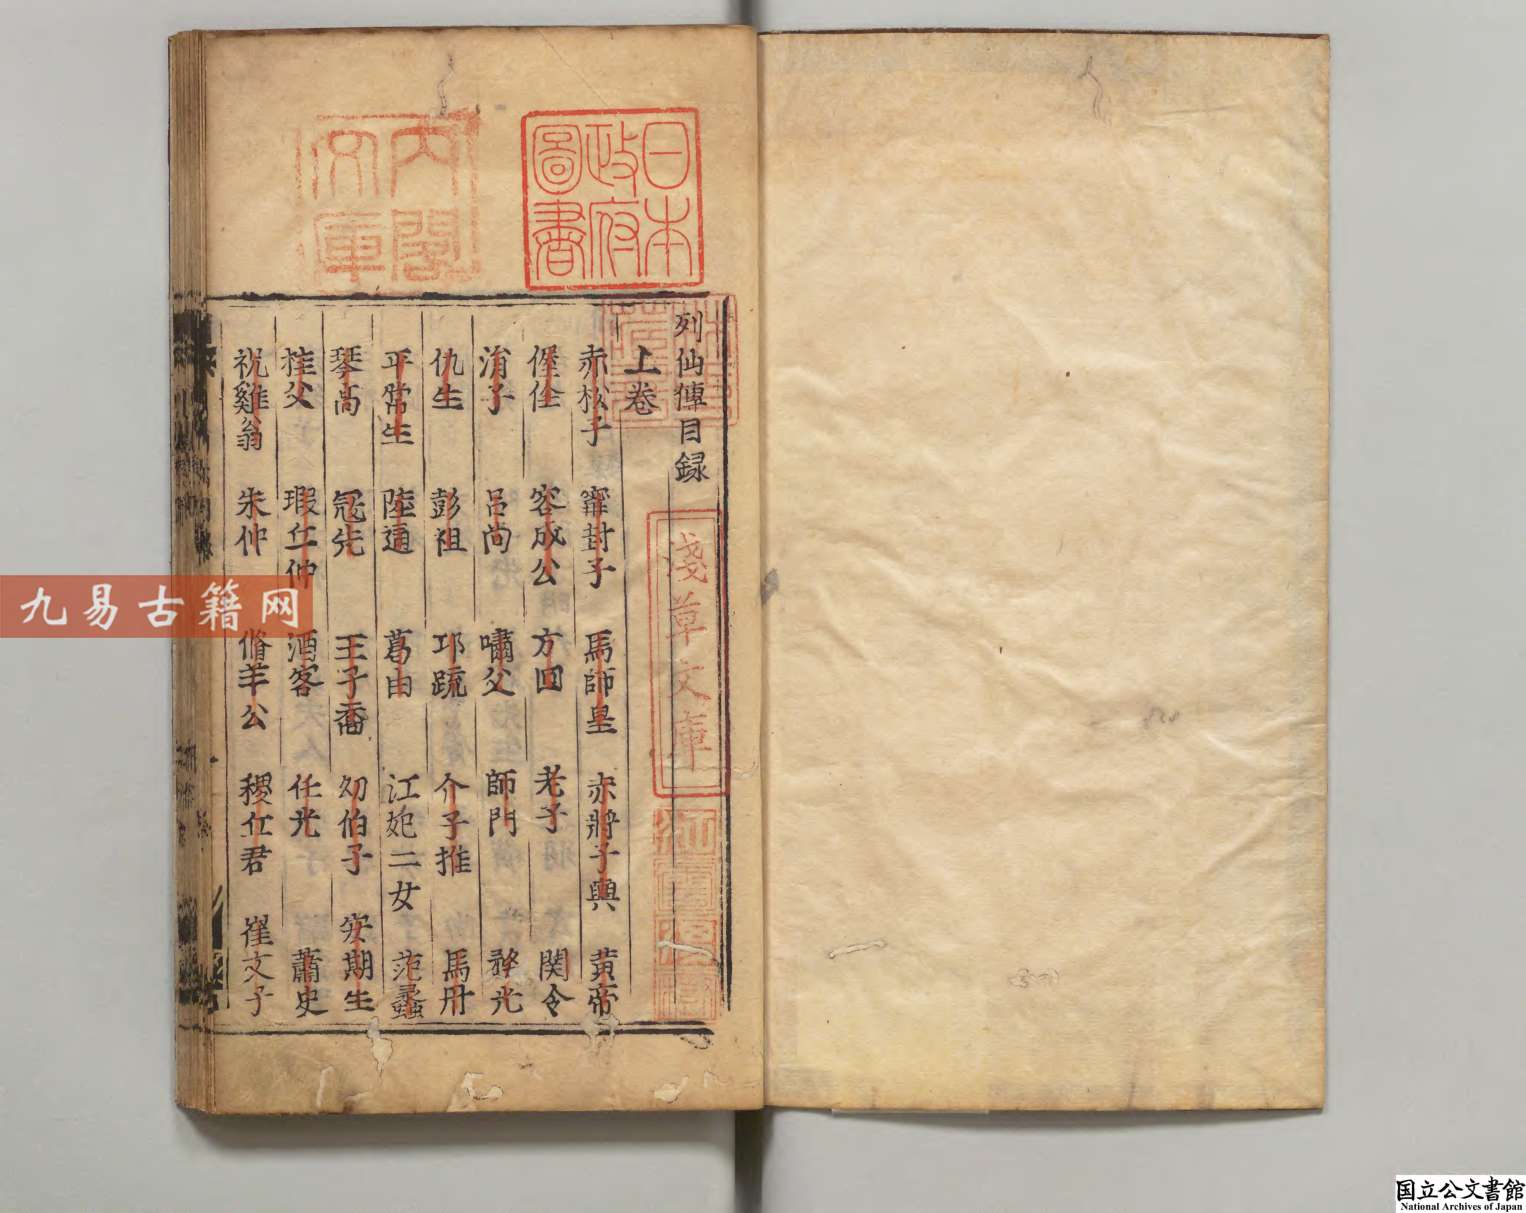 列仙傳目録
上卷
赤松子 甯封子 馬師皇 赤將子輿 黃帝
偓佺 容成公 方回 老子 関令
涓子 呂尚 嘯父 師門 務光
仇生 彭祖 邛疏 介子推 馬丹
平常生 陸通 葛由 江妃二女 范蠡
琴高 冦先 王子喬 幼伯子 安期生
桂父 瑕丘仲 酒客 任光 蕭史
祝雞翁 朱仲 脩羊公 稷丘君 崔文子
日本
政府
圖書
內閣
文庫
淺草文庫
林氏
藏書
九易古籍网
国立公文書館
National Archives of Japan